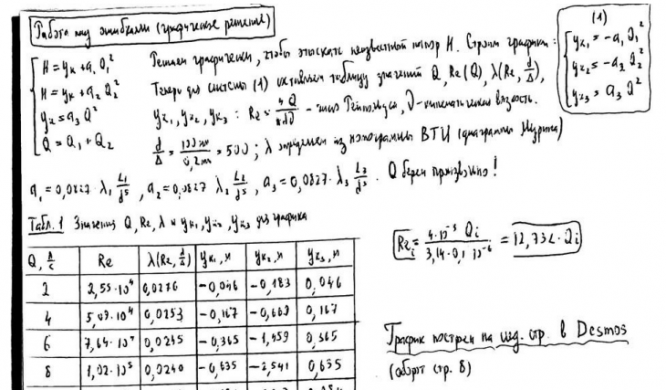 Работа над ошибками (графическое решение)
H = y_k + a_1 Q_1^2
H = y_k + a_2 Q_2^2
y_k = a_3 Q^2
Q = Q_1 + Q_2
Решаем графически, чтобы отыскать неизвестный напор H. Строим графики:
(1)
y_{k_1} = -a_1 Q_1^2
y_{k_2} = -a_2 Q_2^2
y_{k_3} = a_3 Q^2
Теперь для системы (1) составляем таблицу значений Q, Re(Q), λ(Re, d/Δ),
y_{k_1}, y_{k_2}, y_{k_3} : Re = 4Q/πdν - число Рейнольдса, ν - кинематическая вязкость.
d/Δ = 100 мм/0,2 мм = 500; λ определяем из номограммы ВТИ (диаграммы Мурина)
a_1 = 0,0827·λ_1 L_1/d^5, a_2 = 0,0827 λ_2 L_2/d^5, a_3 = 0,0827·λ_3 L_3/d^5. Q берем произвольно!
Табл. 1 Значения Q, Re, λ и y_{k_1}, y_{k_2}, y_{k_3} для графика
Q, л/с Re λ(Re, d/Δ) y_{k_1}, м y_{k_2}, м y_{k_3}, м
2 2,55·10^4 0,0276 -0,046 -0,183 0,046
4 5,09·10^4 0,0253 -0,167 0,167
6 7,64·10^4 0,0245 -0,365 -1,459 0,365
8 1,02·10^5 0,0240 -0,635 -2,541 0,635
Re_i = 4·10^{-3} Q_i / 3,14·0,1·10^{-6} = 12,732·Q_i
График построен на след. стр. в Desmos
(оборот стр. 8)